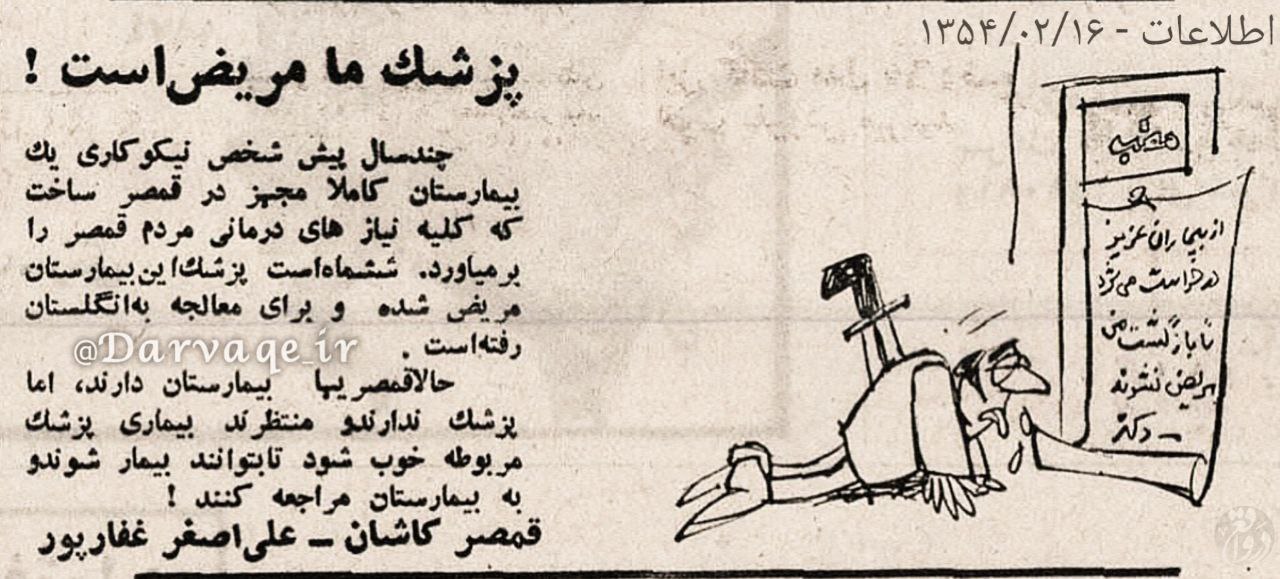 اطلاعات - ۱۳۵۴/۰۲/۱۶
پزشك ما مریض‌است !
چندسال پیش شخص نیکوکاری یك
بیمارستان کاملا مجهز در قمصر ساخت
که کلیه نیاز های درمانی مردم قمصر را
برمیاورد. ششماه‌است پزشك‌این‌بیمارستان
مریض شده و برای معالجه به‌انگلستان
رفته‌است .
حالاقمصریها بیمارستان دارند، اما
پزشك ندارندو منتظرند بیماری پزشك
مربوطه خوب شود تابتوانند بیمار شوندو
به بیمارستان مراجعه کنند !
قمصر کاشان ــ علی‌اصغر غفارپور
@Darvaqe_ir
مطب
از بیماران عزیز
درخواست می‌شود
تا بازگشت من
مریض نشوند
ــ دکتر